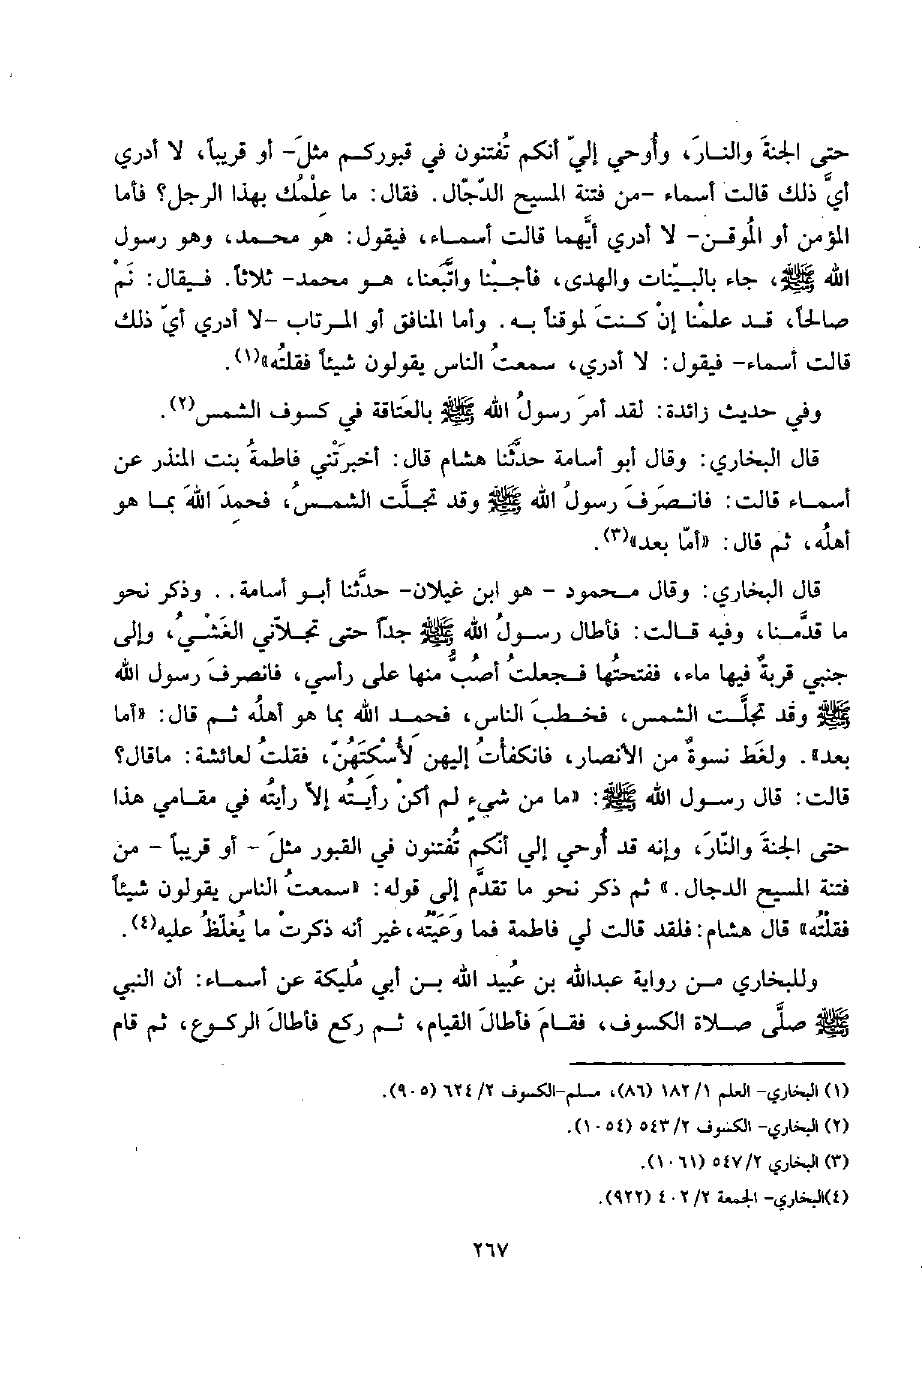 حتى الجنةَ والنـارَ، وأُوحي إليّ أنكم تُفتنون في قبوركـم مثلَ- أو قريباً، لا أدري
أيَّ ذلك قالت أسماء -من فتنة المسيح الدّجّال. فقال: ما علْمُك بهذا الرجل؟ فأما
المؤمن أو المُوقـن- لا أدري أيَّهما قالت أسمـاء، فيقول: هو محمـد، وهو رسول
الله ﷺ، جاء بالبـيّنات والهدى، فأجـبْنا واتَّبعنا، هـو محمد- ثلاثاً. فـيقال: نَمْ
صـالحاً، قـد علمْنا إنْ كـنتَ لموقناً بـه. وأما المنافق أو المـرتاب -لا أدري أيّ ذلك
قالت أسماء- فيقول: لا أدري، سمعتُ الناس يقولون شيئاً فقلتُه»(١).
وفي حديث زائدة: لقد أمرَ رسولُ الله ﷺ بالعَتاقة في كسوف الشمس(٢).
قال البخاري: وقال أبو أسامة حدثَّنا هشام قال: أخبرَتْني فاطمةُ بنت المنذر عن
أسمـاء قالت: فانـصَرفَ رسولُ الله ﷺ وقد تجـلَّت الشمـسُ، فحمِدَ اللهَ بمـا هو
أهلُه، ثم قال: «أمّا بعد»(٣).
قال البخاري: وقال محمود - هو ابن غيلان- حدثَّنا أبـو أسامة.. وذكر نحو
ما قدَّمـنا، وفيه قـالت: فأطال رسـولُ الله ﷺ جداً حتى تجـلاّني الغَشْـيُ، وإلى
جنبي قربةٌ فيها ماء، ففتحتُها فـجعلتُ أصُبُّ منها على رأسي، فانصرفَ رسول الله
ﷺ وقد تجلَّـت الشمس، فخطبَ الناس، فحمـد الله بما هو أهلُه ثـم قال: «أما
بعد». ولغَط نسوةٌ من الأنصار، فانكفأتُ إليهن لأُسكْتَهُنّ، فقلتُ لعائشة: ماقال؟
قالت: قال رسـول الله ﷺ: «ما من شيءٍ لم أكنْ رأيَـتُه إلاّ رأيتُه في مقـامي هذا
حتى الجنةَ والنّارَ، وإنه قد أُوحي إلي أنّكم تُفتنون في القبور مثلَ - أو قريباً - من
فتنة المسيح الدجال.» ثم ذكر نحو ما تقدَّم إلى قوله: «سمعتُ الناس يقولون شيئاً
فقلتُه» قال هشام: فلقد قالت لي فاطمة فما وَعَيْتُه، غير أنه ذكرتْ ما يُغلّظُ عليه(٤).
وللبخاري مـن رواية عبدالله بن عُبيد الله بـن أبي مُليكة عن أسمـاء: أن النبي
ﷺ صلَّى صـلاة الكسوف، فقـامَ فأطالَ القيام، ثـم ركع فأطالَ الركـوع، ثم قام
(١) البخاري- العلم ١/ ١٨٢ (٨٦)، مسلم-الكسوف ٢/ ٦٢٤ (٩٠٥).
(٢) البخاري- الكسوف ٢/ ٥٤٣ (١٠٥٤).
(٣) البخاري ٢/ ٥٤٧ (١٠٦١).
(٤)البخاري- الجمعة ٢/ ٤٠٢ (٩٢٢).
٢٦٧